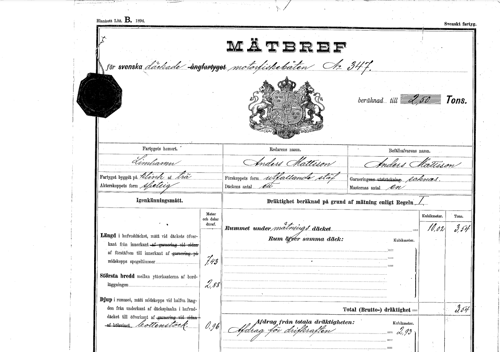 Blankett Litt. B. 1894.
Svenskt fartyg.
MÄTBREF
för svenska däckade ångfartyget motorfiskebåten Nr. 347.
beräknad till 2,80 Tons.
Fartygets hemort.
Redarens namn.
Befälhafvarens namn.
Limhamn
Anders Mattisson
Anders Mattisson
Fartyget byggdt på klink a trä
Förskeppets form utfallande stäf
saknas.
Akterskeppets form spetsig
Däckens antal ett
Masternas antal en
Igenkänningsmått.
Meter och delar deraf.
Dräktighet beräknad på grund af mätning enligt Regeln I.
Kubikmeter.
Tons.
Rummet under mätningsdäcket
10,02
3,54
Rum öfver samma däck:
Kubikmeter.
Längd i hufvuddäcket, mätt vid däckets öfver-
kant från innerkant af garnering vid sidan
af förstäfven till innerkant af garnering på
midskepps spegelfönster
7,43
Största bredd mellan ytterkanterna af bord-
läggningen
2,88
Djup i rummet, mätt midskepps vid halfva läng-
den från underkant af däcksplanka i hufvud-
däcket till öfverkant af garnering vid sidan
af kölsvinet. bottenstock
0,96
Total (Brutto-) dräktighet
3,54
Afdrag från totala dräktigheten:
Kubikmeter.
Afdrag för drifkraften
2,93